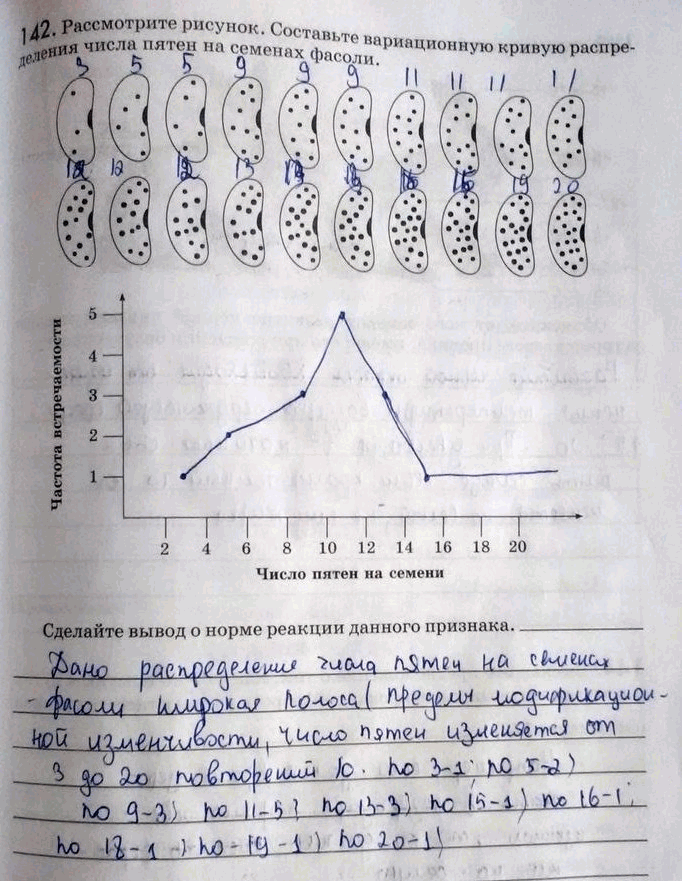 142. Рассмотрите рисунок. Составьте вариационную кривую распре-
деления числа пятен на семенах фасоли.
3 5 5 9 9 9 11 11 11 11
12 13 19 20
Частота встречаемости
5
4
3
2
1
2 4 6 8 10 12 14 16 18 20
Число пятен на семени
Сделайте вывод о норме реакции данного признака.
Дано распределение числа пятен на семенах
фасоли широкая полоса (пределы модификацион-
ной изменчивости, число пятен изменяется от
3 до 20 повторений 10. по 3-1; по 5-2)
по 9-3) по 11-5; по 13-3) по 15-1) по 16-1;
по 18-1) по-19-1) по 20-1)